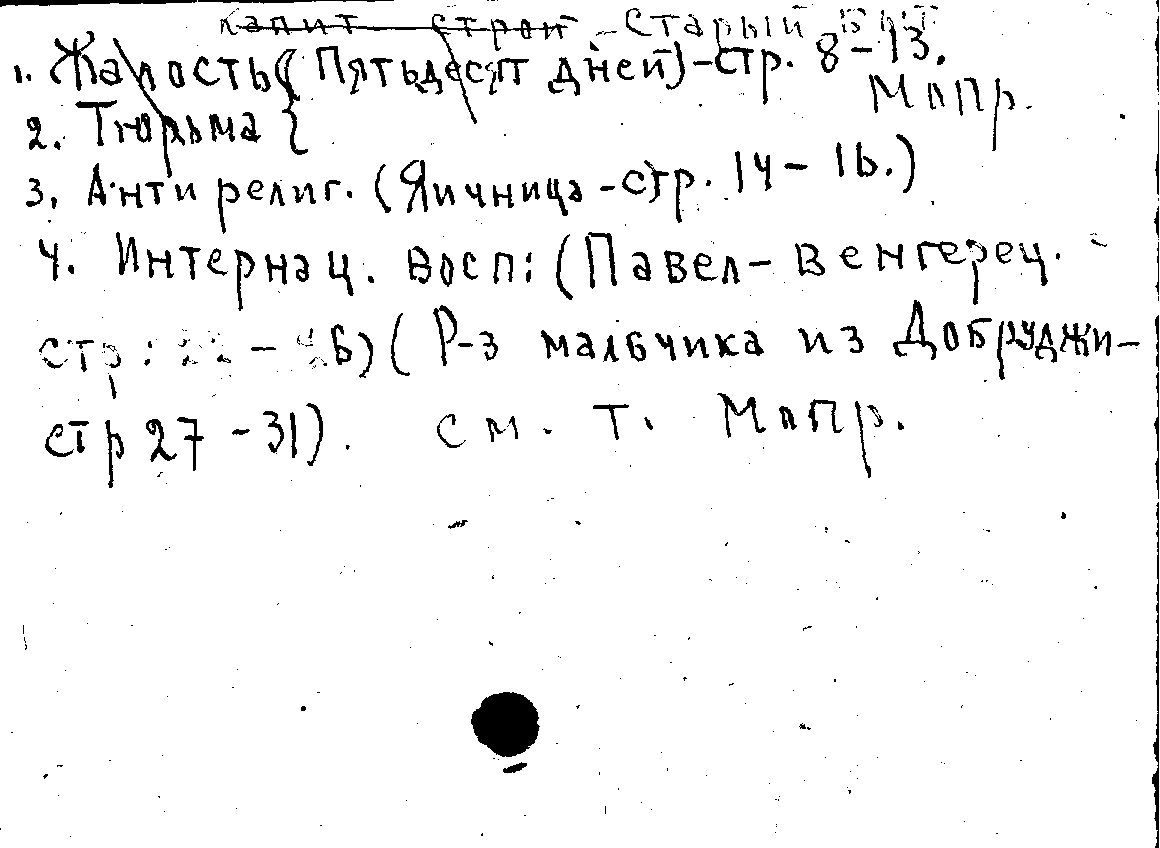 капит строй - старый быт
1. Жалость (Пятьдесят дней) - стр. 8-13.
Мопр.
2. Тюрьма {
3. Анти религ. (Яичница - стр. 14-16.)
4. Интернац. восп: (Павел - венгерец.
стр: 22 - 26) (Р-з мальчика из Добруджи -
стр 27 - 31). см. т. Мопр.